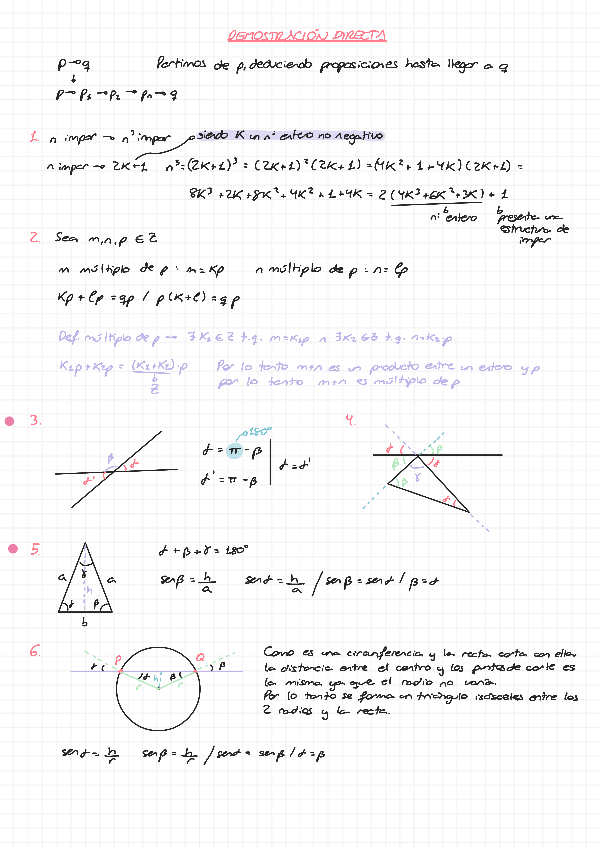 DEMOSTRACIÓN DIRECTA
p→q Partimos de p, deduciendo proposiciones hasta llegar a q
↓
p→p₁→p₂→pₙ→q
1. n impar → n³ impar siendo K un nº entero no negativo
n impar → 2K+1 n³=(2K+1)³ = (2K+1)²(2K+1) = (4K²+1+4K)(2K+1) =
8K³+2K+8K²+4K²+1+4K = 2(4K³+6K²+3K)+1
nº entero presenta una
estructura de
impar
2. Sea m,n,p ∈ Z
m múltiplo de p : m=Kp n múltiplo de p : n=lp
Kp+lp=qp / p(K+l)=qp
Def. múltiplo de p → ∃K₁∈Z t.q. m=K₁p n ∃K₂∈Z t.q. n=K₂p
K₁p+K₂p = (K₁+K₂)·p Por lo tanto m+n es un producto entre un entero y p
Z por lo tanto m+n es múltiplo de p
3.
180°
β
α
α'
α = π - β
α' = π - β
α=α'
4.
α β
β α
γ
β α
5.
α+β+γ=180°
a γ a
h
α β
b
senβ = h/a senα = h/a / senβ = senα / β=α
6.
α P Q β
α h β
r r
Como es una circunferencia y la recta corta con ella,
la distancia entre el centro y los puntos de corte es
la misma ya que el radio no varía.
Por lo tanto se forma un triángulo isósceles entre los
2 radios y la recta.
senα = h/r senβ = h/r / senα = senβ / α=β